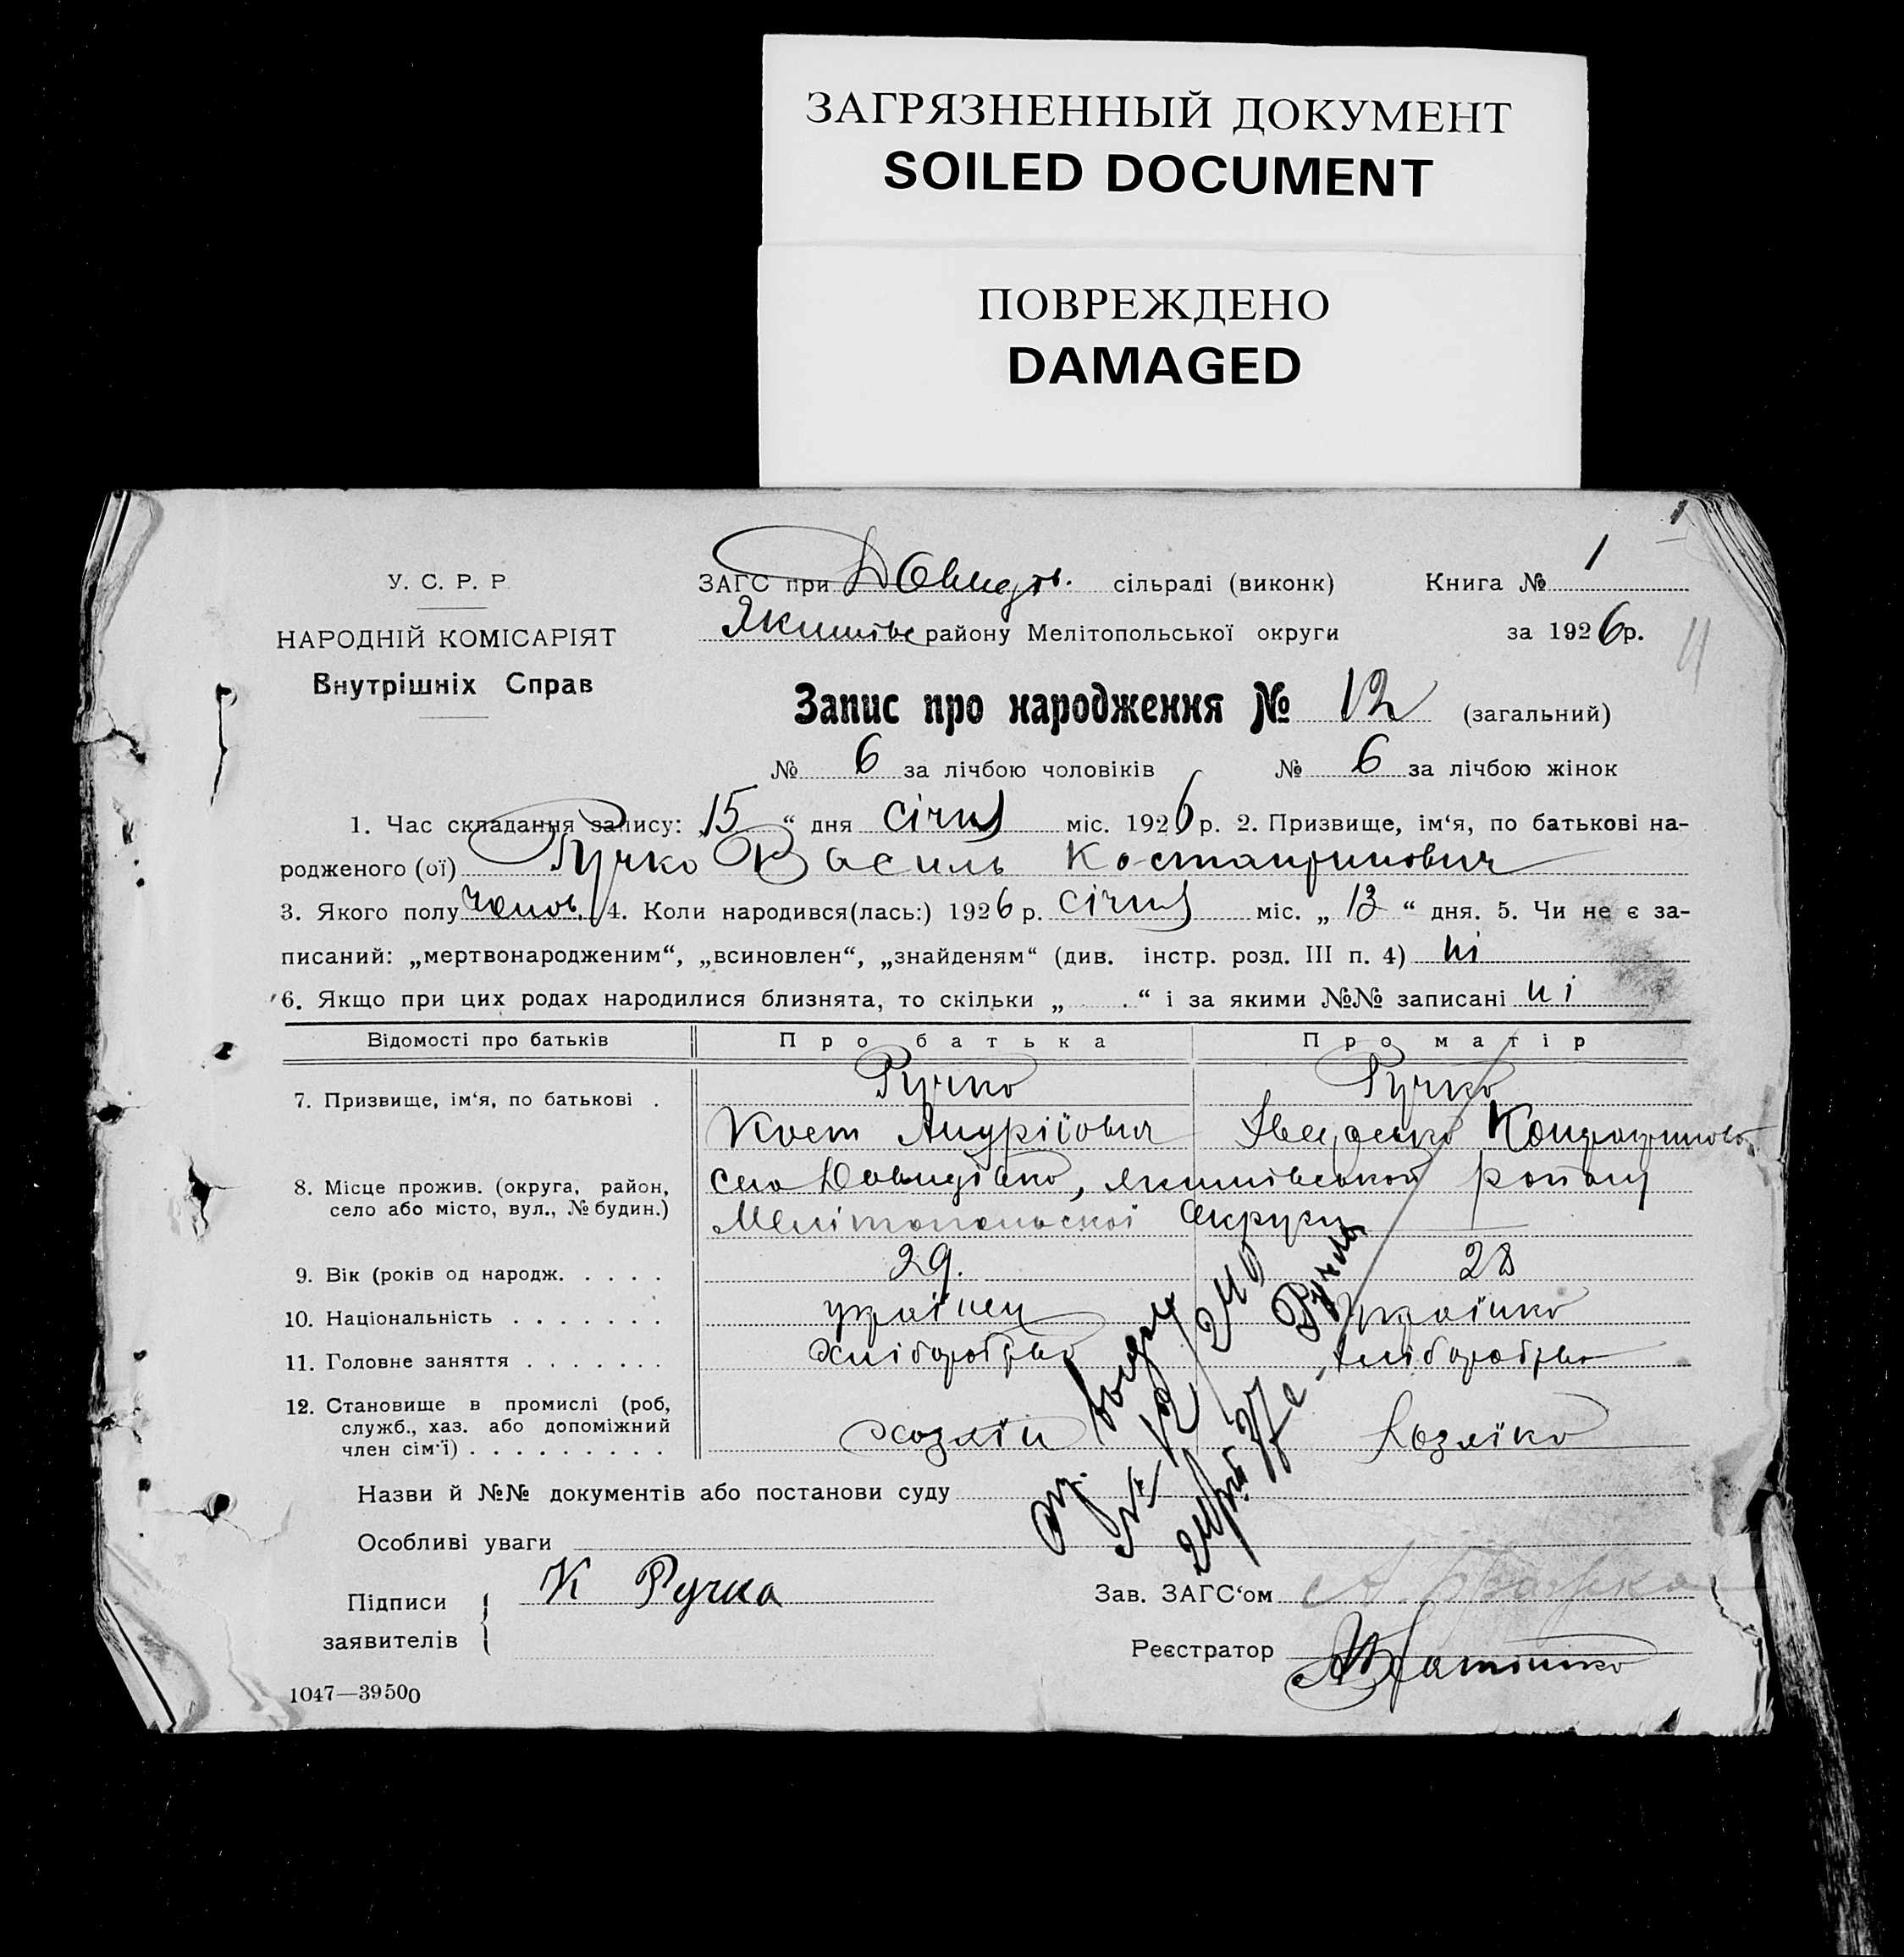 ЗАГРЯЗНЕННЫЙ ДОКУМЕНТ
SOILED DOCUMENT
ПОВРЕЖДЕНО
DAMAGED
1
У. С. Р. Р. ЗАГС при Давидів. сільраді (виконк) Книга № 1
НАРОДНІЙ КОМІСАРІЯТ Якимівс району Мелітопольської округи за 1926 р.
Внутрішніх Справ
Запис про народження № 12 (загальний)
№ 6 за лічбою чоловіків № 6 за лічбою жінок
1. Час складання запису: 15 “ дня січня міс. 1926 р. 2. Призвище, ім‘я, по батькові на-
родженого (ої) Ручко Василь Костантинович
3. Якого полу чолов. 4. Коли народився(лась:) 1926 р. січня міс. „ 13 “ дня. 5. Чи не є за-
писаний: „мертвонародженим“, „всиновлен“, „знайденям“ (див. інстр. розд. III п. 4) ні
6. Якщо при цих родах народилися близнята, то скільки „ “ і за якими №№ записані ні
Відомості про батьків Про батька Про матір
7. Призвище, ім‘я, по батькові . Ручко Ручко
Кост Андрійович
8. Місце прожив. (округа, район, село або місто, вул., № будин.) село Давидівка, Якимівського району
Мелітопольскої Округи
9. Вік (років од народж. . . . . 29. 28
10. Національність . . . . . . . українец українка
11. Головне заняття . . . . . . . Хліборобство хліборобство
12. Становище в промислі (роб,
служб., хаз. або допоміжний
член сім‘ї) . . . . . . . . . хозяїн хозяїка
№ 12
Назви й №№ документів або постанови суду
Особливі уваги
Підписи заявителів К Ручка
Зав. ЗАГС‘ом
Реєстратор
1047—39500